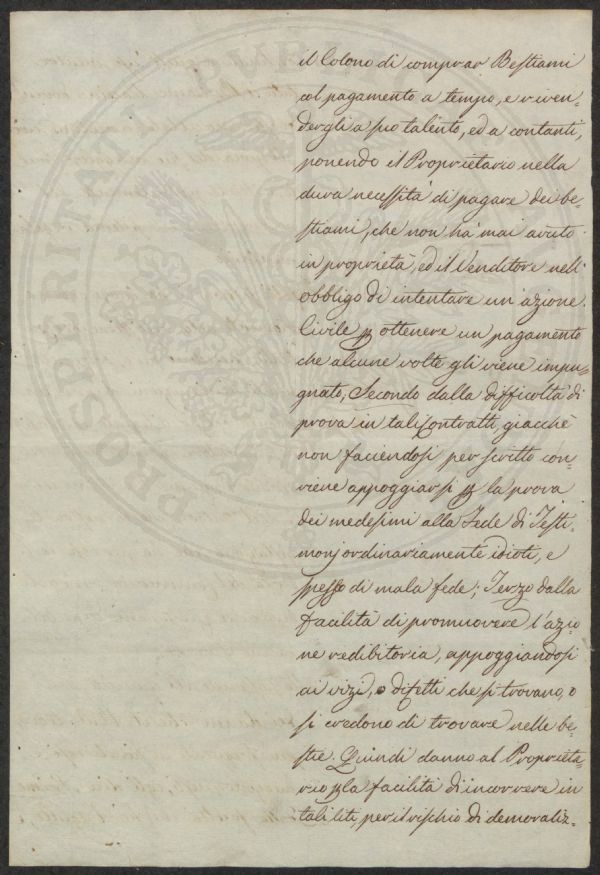 il Colono di comprar Bestiami
col pagamento a tempo, e riven-
dergli a suo talento, ed a contanti,
ponendo il Proprietario nella
dura necessità di pagare dei be-
stiami, che non ha mai avuto
in proprietà, ed il Venditore nell'
obbligo di intentare un'azione
Civile ꝑ ottenere un pagamento
che alcune volte gli viene impu-
gnato, Secondo dalla difficoltà di
prova in tali Contratti, giacchè
non faciendosi per scritto con-
viene appoggiarsi ꝑ la prova
dei medesimi alla Fede di Testi-
monj ordinariamente idioti, e
spesso di mala fede; Terzo dalla
facilità di promuovere l'azio-
ne redibitoria, appoggiandosi
ai vizi, o difetti che si trovano, o
si credono di trovare nelle be-
stie. Quindi danno al Proprieta-
rio ꝑ la facilità di incorrere in
tali liti, per il rischio di demoraliz-
PROSPERITA
PVB